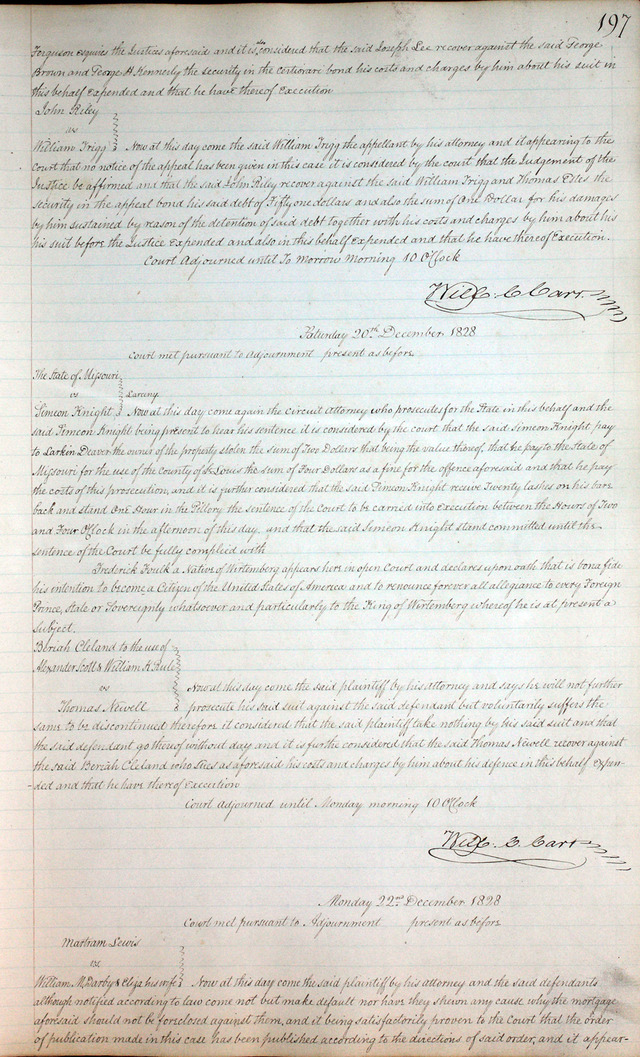 197
Ferguson esquires the Justices aforesaid and it is also considered that the said Joseph Lee recover against the said George
Brown and George H Kennerly the security in the certiorari bond his costs and charges by him about his suit in
this behalf expended and that he have thereof Execution
John Riley
vs
William Trigg } Now at this day come the said William Trigg the appellant by his attorney and it appearing to the
Court that no notice of the appeal has been given in this case it is considered by the court that the Judgement of the
Justice be affirmed and that the said John Riley recover against the said William Trigg and Thomas Estes the
security in the appeal bond his said debt of Fifty one dollars and also the sum of One Dollar for his damages
by him sustained by reason of the detention of said debt together with his costs and charges by him about his
his suit before the Justice Expended and also in this behalf Expended and that he have thereof Execution.
Court Adjourned until To Morrow Morning 10 O'Clock
Will. C. Carr
Saturday 20th December 1828
Court met pursuant to Adjournment present as before
The State of Missouri
vs } Larceny
Simeon Knight } Now at this day come again the Circuit Attorney who prosecutes for the State in this behalf and the
said Simeon Knight being present to hear his sentence it is considered by the court that the said Simeon Knight pay
to Larken Deaver the owner of the property stolen the sum of Two Dollars that being the value thereof, that he pay to the State of
Missouri for the use of the County of St Louis the sum of Four Dollars as a fine for the offence aforesaid and that he pay
the costs of this prosecution, and it is further considered that the said Simeon Knight receive Twenty lashes on his bare
back and stand One Hour in the Pillory the sentence of the Court to be carried into execution between the Hours of Two
and Four O'Clock in the afternoon of this day, and that the said Simeon Knight stand committed until the
sentence of the Court be fully complied with
Frederick Koulk a Native of Wirtemberg appears here in open Court and declares upon oath that is bona fide
his intention to become a Citizen of the United States of America and to renounce forever all allegiance to every Foreign
Prince, State or Sovereignty whatsoever and particularly to the King of Wirtemberg whereof he is at present a
Subject.
Beriah Cleland to the use of
Alexander Scott & William K Rule
vs } Now at this day come the said plaintiff by his attorney and says he will not further
Thomas Newell } prosecute his said suit against the said defendant but voluntarily suffers the
same to be discontinued therefore it considered that the said plaintiff take nothing by his said suit and that
the said defendant go thereof without day and it is further considered that the said Thomas Newell recover against
the said Beriah Cleland who sues as aforesaid his costs and charges by him about his defence in this behalf expen-
-ded and that he have thereof Execution
Court adjourned until Monday morning 10 O'Clock
Will. C. Carr
Monday 22nd December 1828
Court met pursuant to Adjournment present as before
Martram Lewis
vs
William M. Darby & Eliza his wife } Now at this day come the said plaintiff by his attorney and the said defendants
although notified according to law come not but make default nor have they shewn any cause why the mortgage
aforesaid should not be foreclosed against them, and it being satisfactorily proven to the Court that the order
of publication made in this case has been published according to the directions of said order, and it appear-